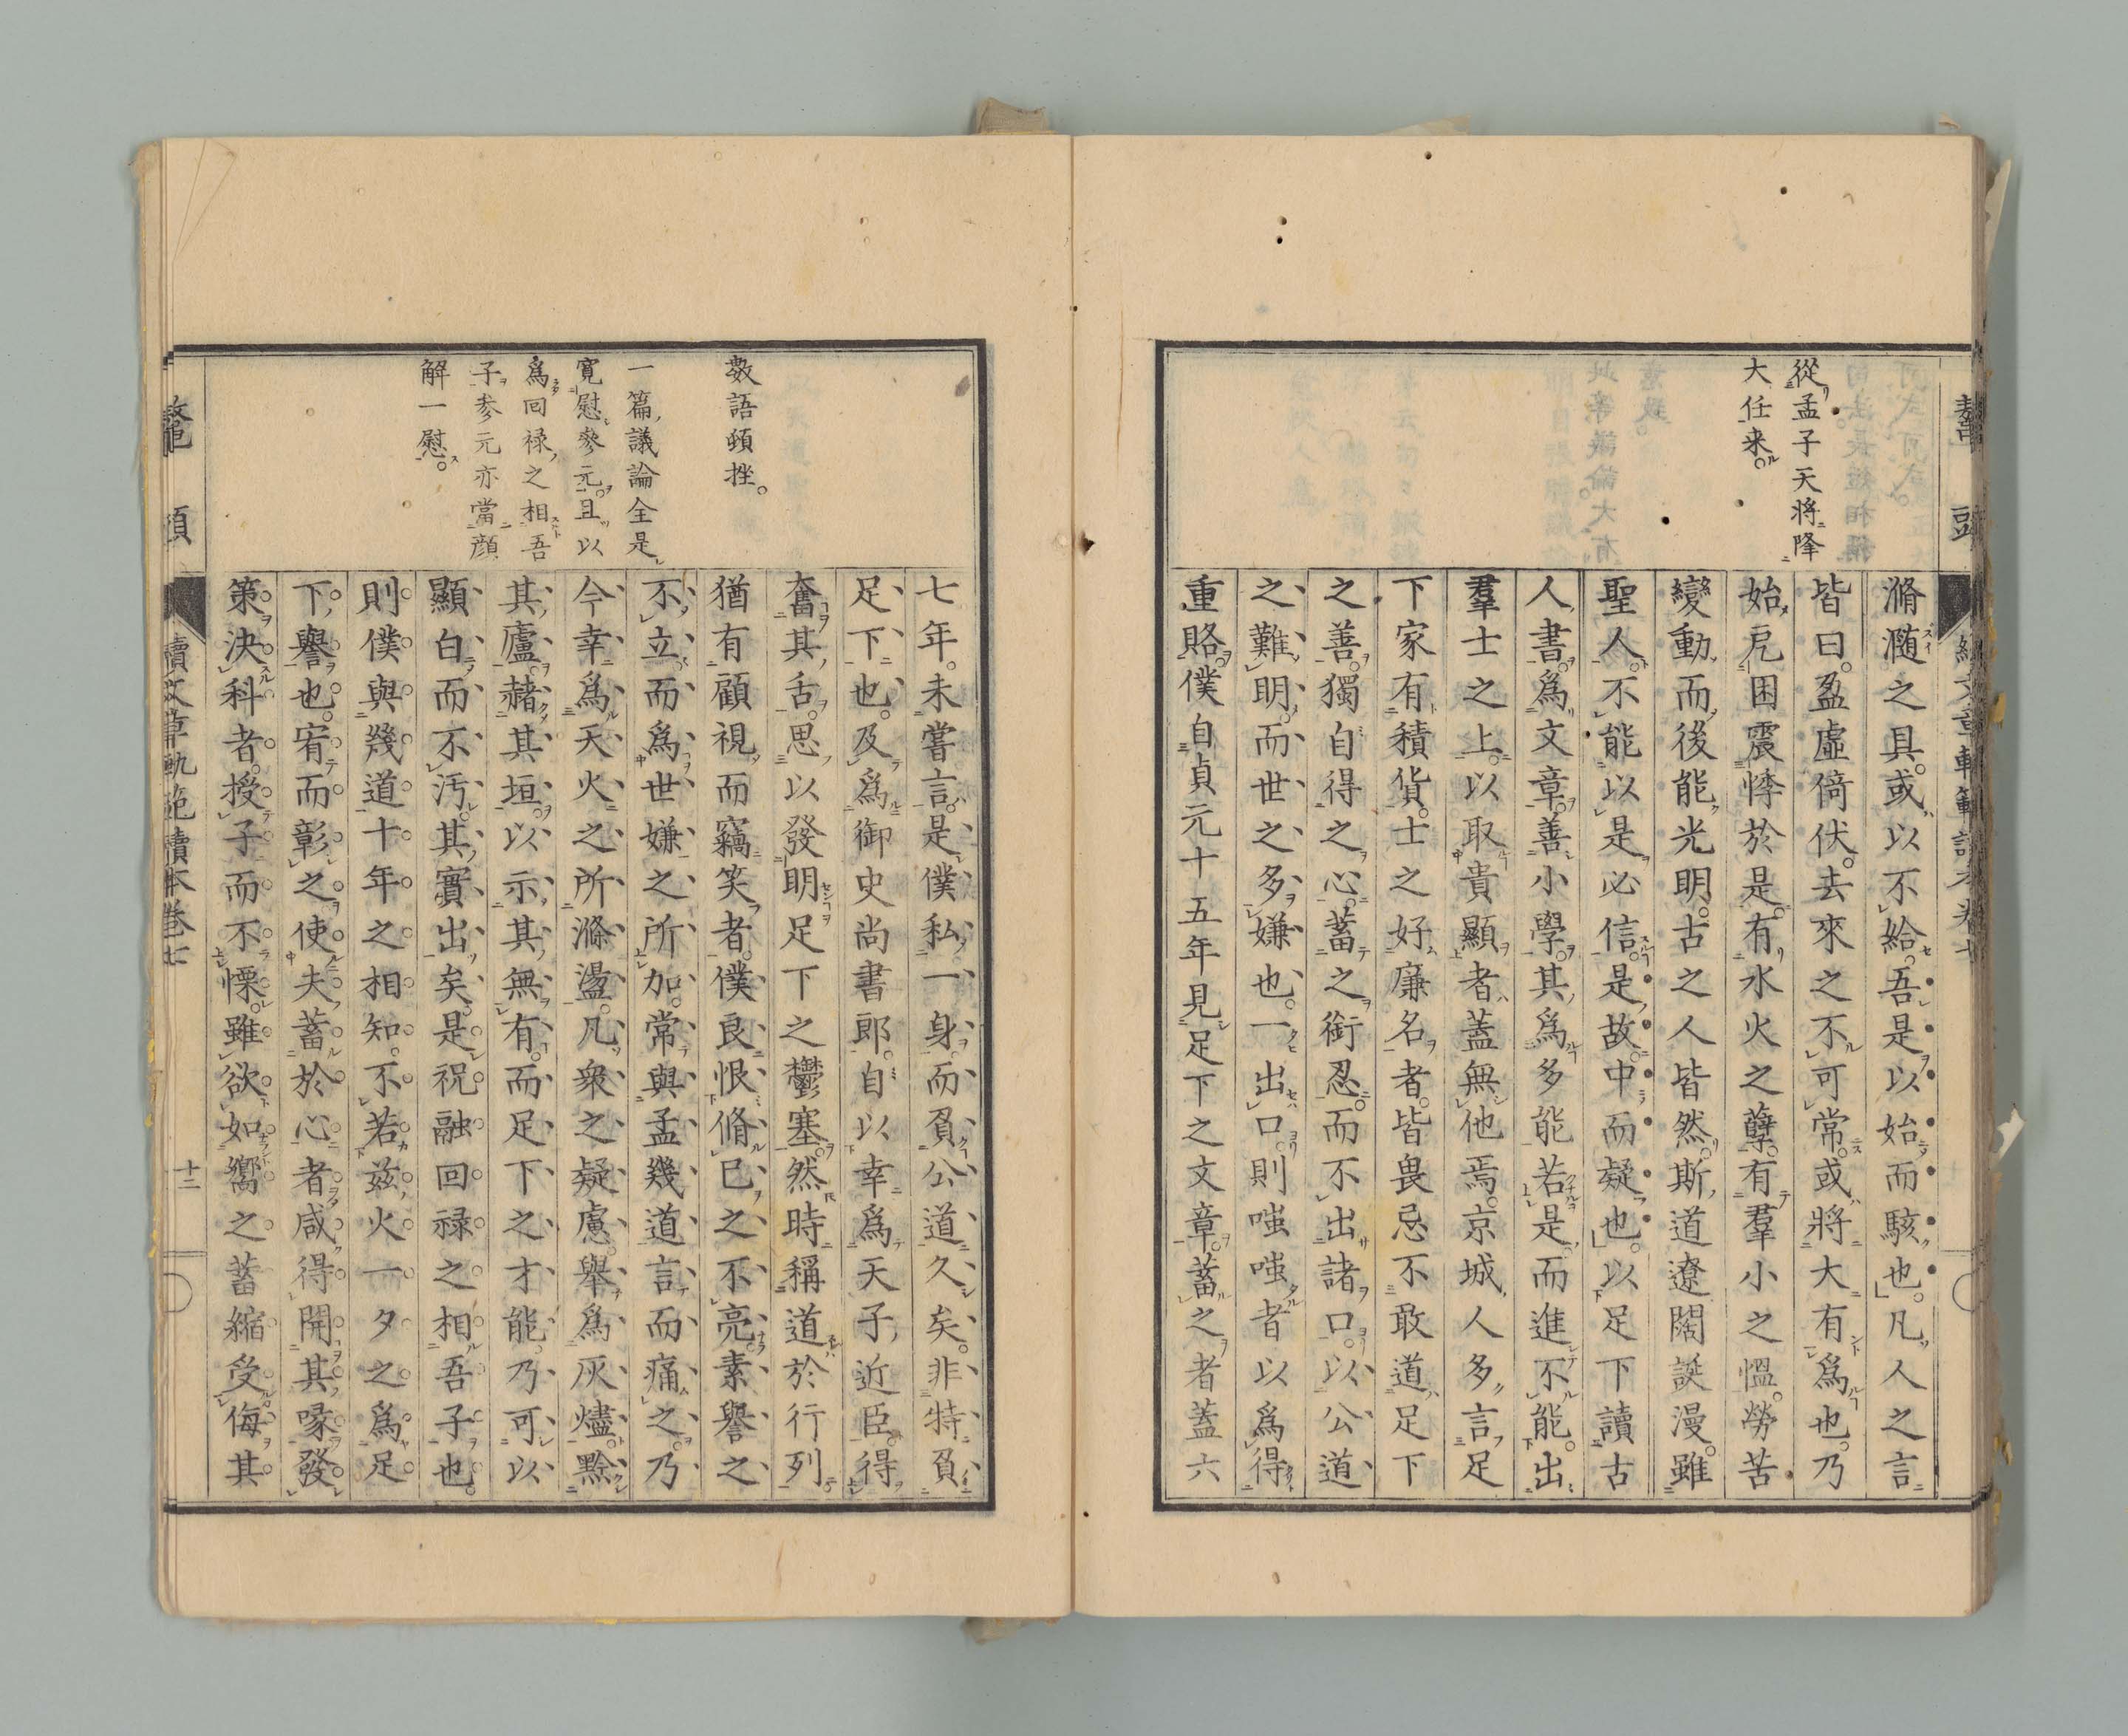 鼇頭
從孟子天將降
大任来。
滫瀡之具。或以不給。吾是以始而駭也。凡人之言
皆曰。盈虛倚伏。去來之不可常。或將大有爲也。乃
始戹困震悸於是。有水火之孽。有羣小之慍。勞苦
變動而後能光明。古之人皆然。斯道遼闊誕漫。雖
聖人不能以是必信。是故中而疑也。以足下讀古
人書。爲文章。善小學。其爲多能若是。而進不能。出
羣士之上。以取貴顯者。蓋無他焉。京城人多言足
下家有積貨。士之好廉名者。皆畏忌不敢道足下
之善。獨自得之心。蓄之銜忍。而不出諸口。以公道
之難明。而世之多嫌也。一出口。則嗤嗤者以爲得
重賂。僕自貞元十五年見足下之文章。蓄之者蓋六
數語頓挫。
一篇議論全是
寛慰參元。且以
爲回禄之相吾
子参元亦當顔
解一慰。
七年。未嘗言。是僕私一身。而負公道久矣。非特負
足下也。及爲御史尚書郎。自以幸爲天子近臣。得
奮其舌。思以發明足下之鬱塞。然時稱道於行列
猶有顧視而竊笑者。僕良恨脩己之不亮。素譽之
不立而爲世嫌之所加。常與孟幾道言而痛之。乃
今幸爲天火之所滌盪。凡衆之疑慮。舉爲灰燼。黔
其廬。赭其垣。以示其無有。而足下之才能。乃可以
顯白而不汚。其實出矣。是祝融回禄之相吾子也。
則僕與幾道十年之相知。不若兹火一夕之爲足
下譽也。宥而彰之。使夫蓄於心者。咸得開其喙。發
策決科者。授子而不慄。雖欲如嚮之蓄縮受侮。其
鼇頭
續文章軌範讀本卷七
十二